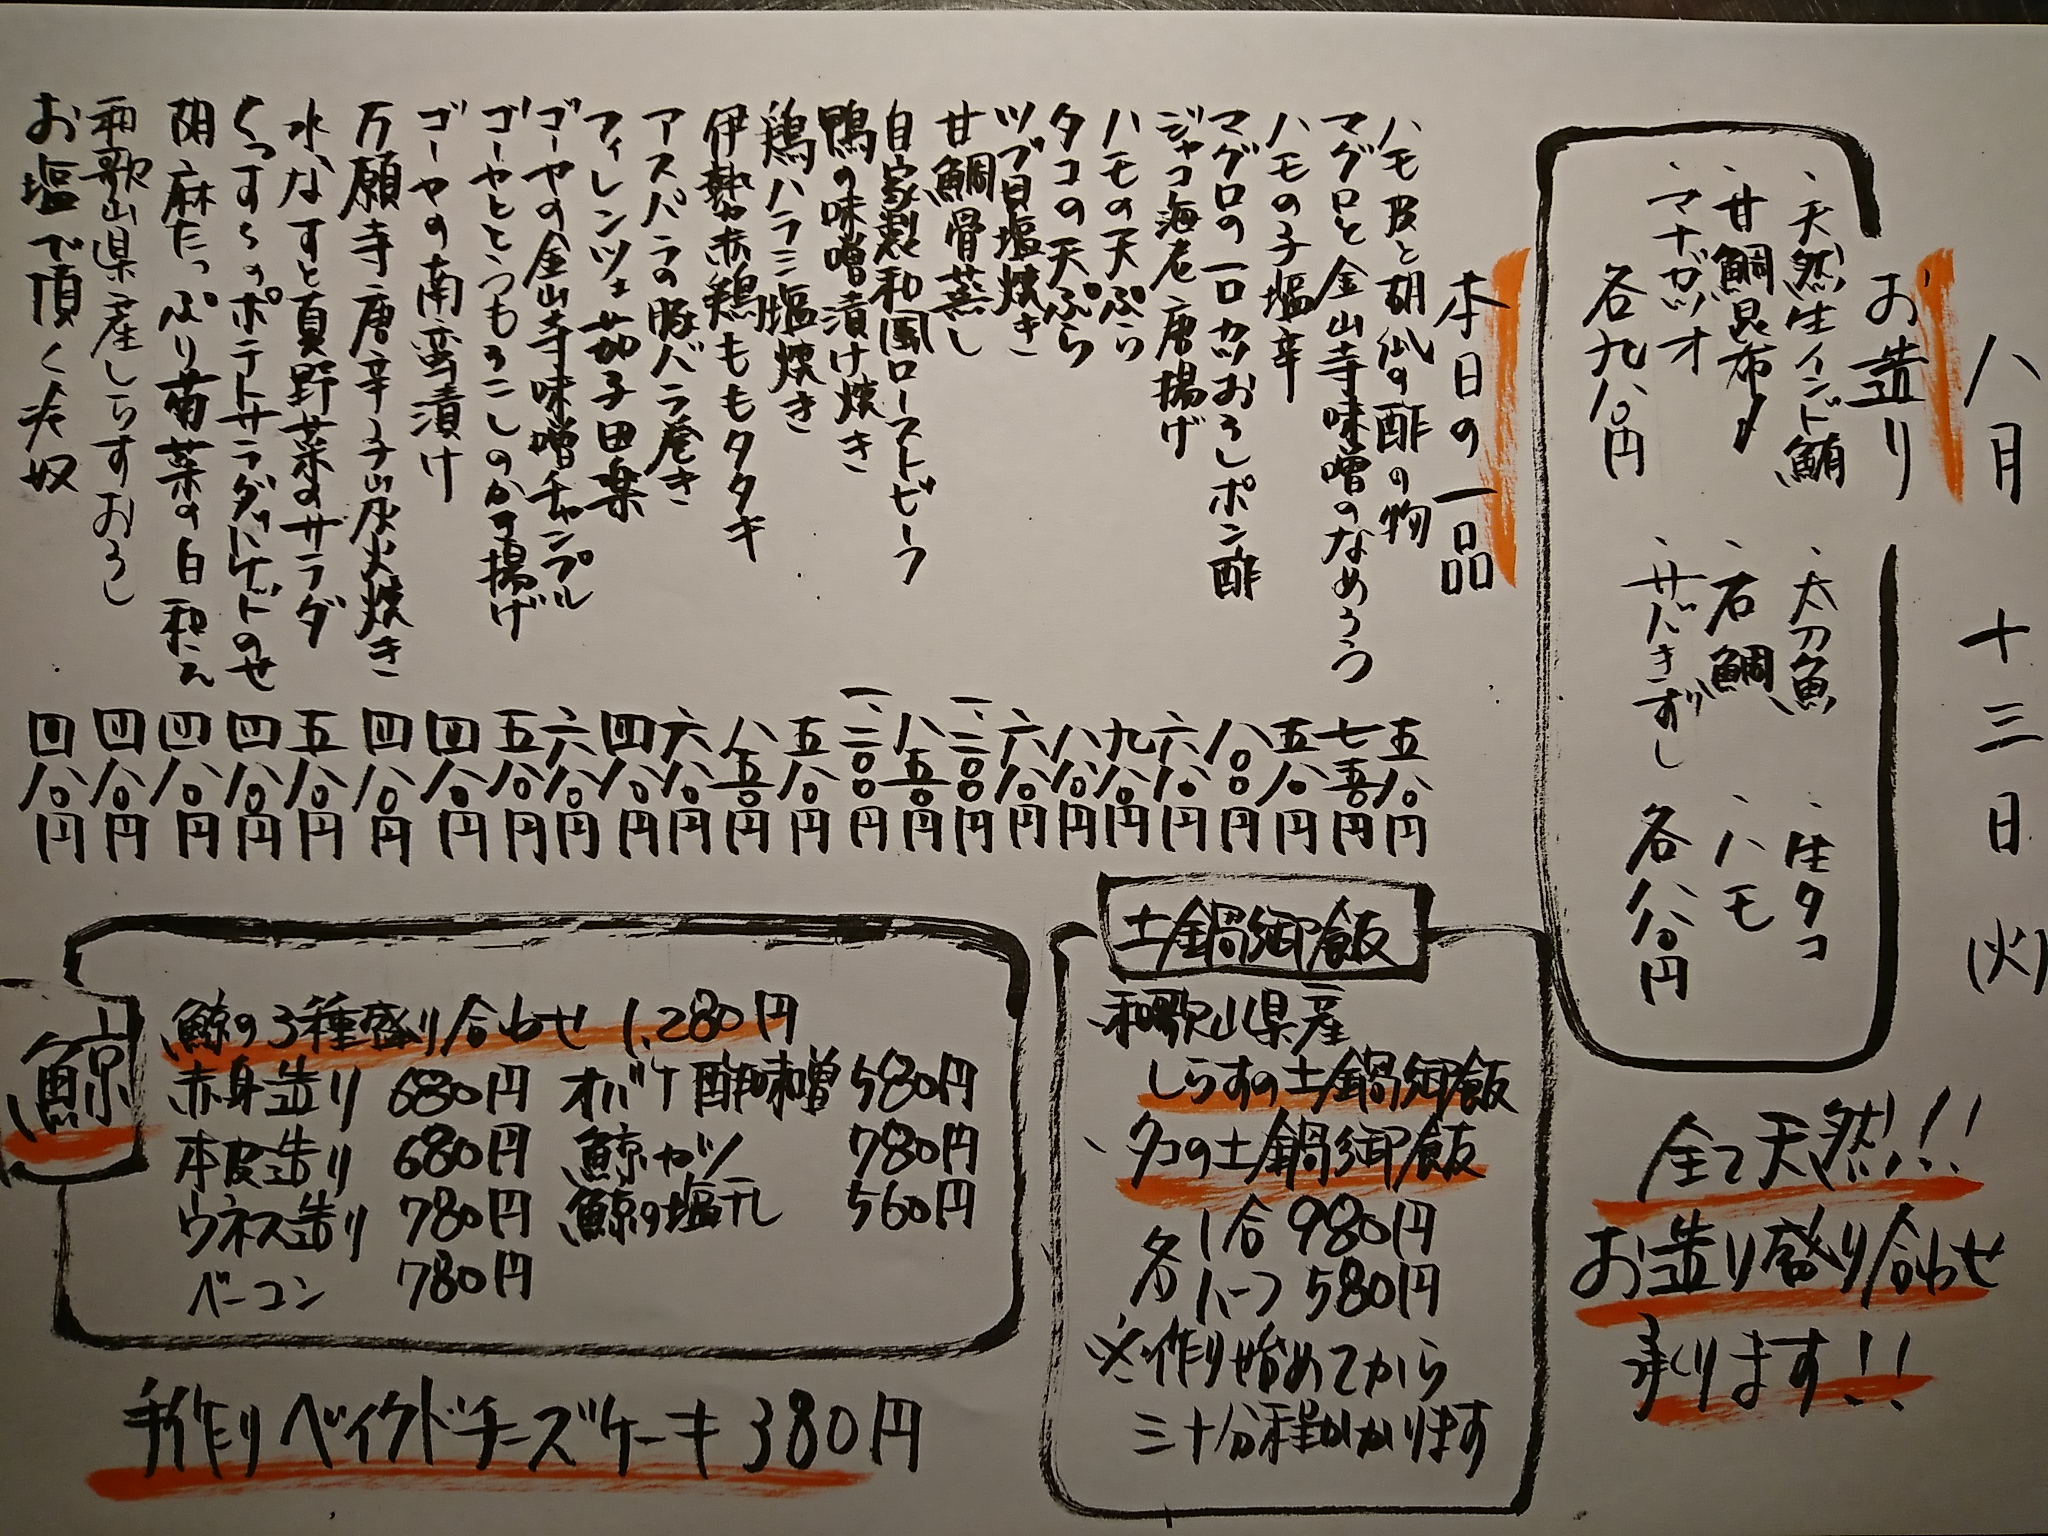 八月 十三日 (火)
お造り
、天然生インド鮪 、太刀魚 、生タコ
、甘鯛昆布〆 、石鯛 、ハモ
、マナガツオ 、サバきずし 各八八〇円
各九八〇円
全て天然!!
お造り盛り合わせ
承ります!!
本日の一品
ハモ皮と胡瓜の酢の物 五八〇円
マグロと金山寺味噌のなめろう 七五〇円
ハモの子塩辛 五八〇円
マグロの一口カツおろしポン酢 八〇〇円
ジャコ海老唐揚げ 六八〇円
ハモの天ぷら 九八〇円
タコの天ぷら 八八〇円
ツブ貝塩焼き 六八〇円
甘鯛骨蒸し 一、二〇〇円
自家製和風ローストビーフ 八五〇円
鴨の味噌漬け焼き 一、二〇〇円
鶏ハラミ塩焼き 五八〇円
伊勢赤鶏ももタタキ 八五〇円
アスパラの豚バラ巻き 六八〇円
フィレンツェ茄子田楽 四八〇円
ゴーヤの金山寺味噌チャンプル 六八〇円
ゴーヤととうもろこしのかき揚げ 五八〇円
ゴーヤの南蛮漬け 四八〇円
万願寺唐辛子炭火焼き 四八〇円
水なすと夏野菜のサラダ 五八〇円
くっすらのポテトサラダバゲットのせ 四八〇円
胡麻たっぷり菊菜の白和え 四八〇円
和歌山県産しらすおろし 四八〇円
お塩で頂く冷奴 四八〇円
土鍋御飯
和歌山県産
しらすの土鍋御飯
、タコの土鍋御飯
各 1合 980円
ハーフ 580円
※作り始めてから
三十分程かかります
鯨
鯨の3種盛り合わせ 1,280円
赤身造り 680円 オバケ酢味噌 580円
本皮造り 680円 鯨カツ 780円
ウネス造り 780円 鯨の塩干し 560円
ベーコン 780円
手作りベイクドチーズケーキ 380円